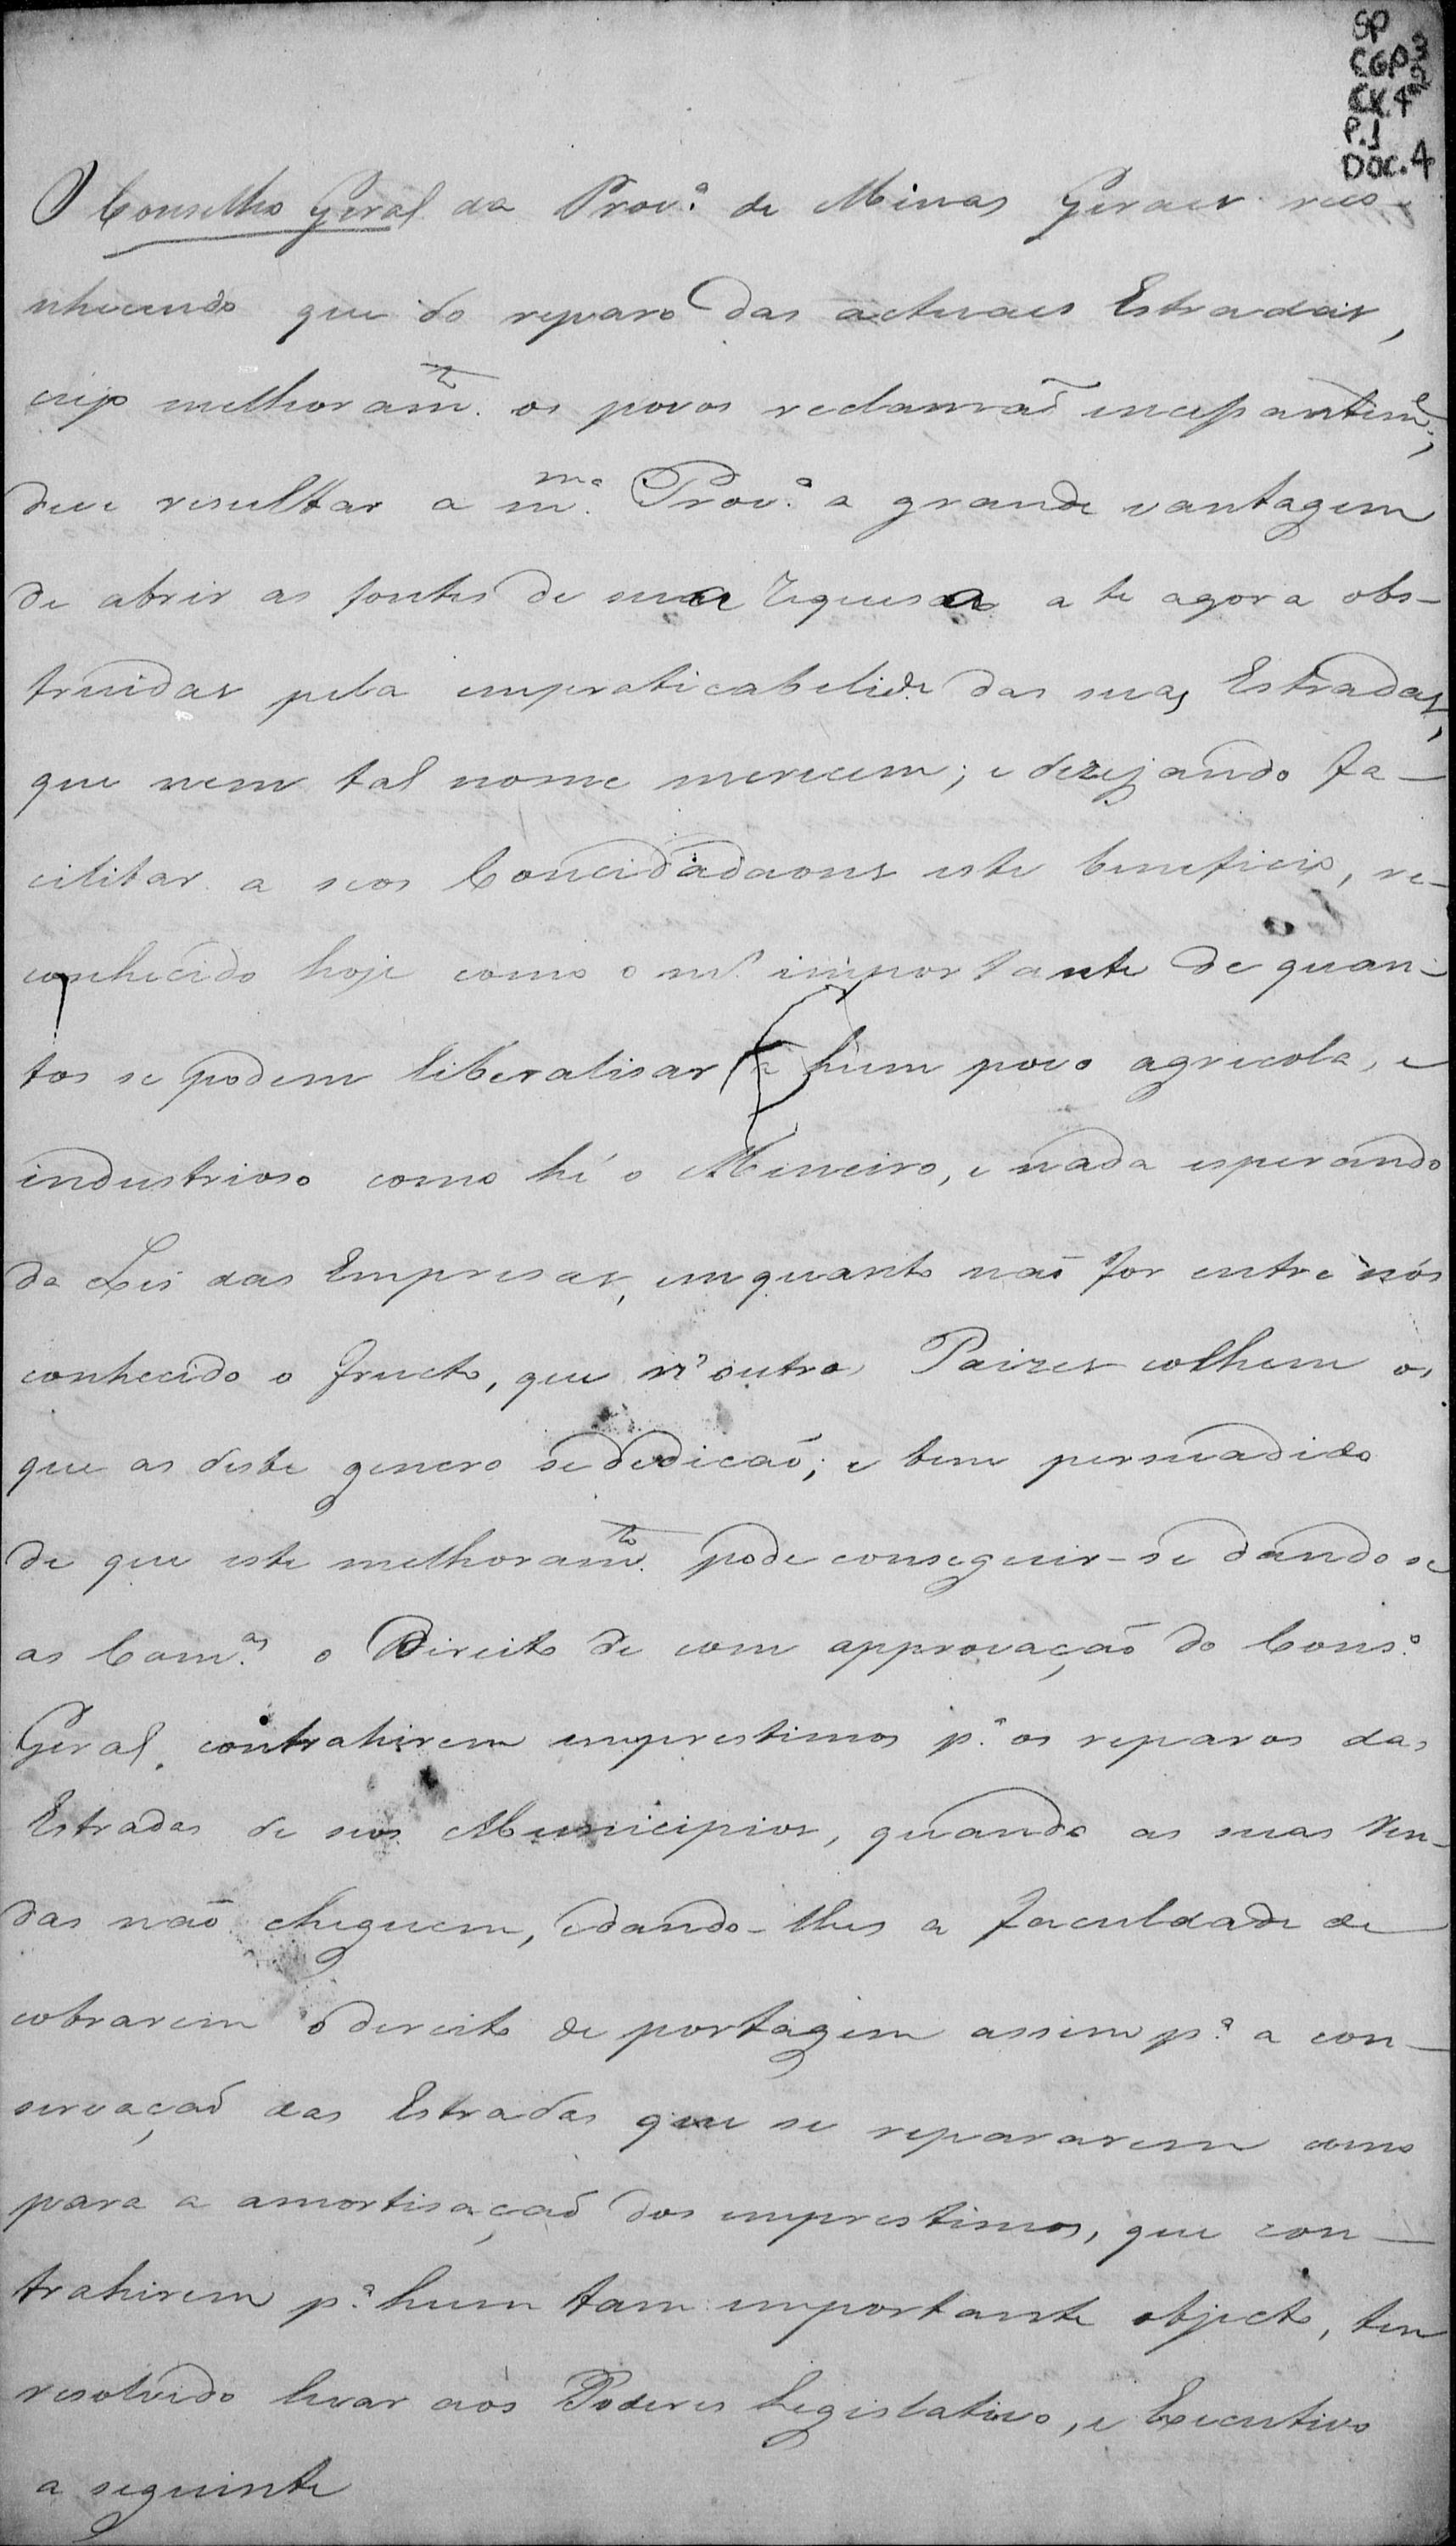 SP
CGP3
CX.42
P.1
DOC.4
O Conselho Geral da Prov.ª de Minas Geraes reco-
nhecendo que do reparo das actuaes Estradas,
cujo melhoram.to os povos reclamaõ incessantem.e,
deve resultar a m.ma Prov.ª a grande vantagem
de abrir as fontes de sua riquesa a te agora obs-
truidas pela impraticabelid.e das suas Estradas,
que nem tal nome merecem; e dezejando fa-
cilitar a seos Concidadaons este beneficio, re-
conhecido hoje como o m.s importante de quan-
tos se podem liberalisar a hum povo agricola, e
industrioso como hé o Mineiro, e nada esperando
da Lei das Empresas, emquanto naõ for entre nós
conhecido o fructo, que n'outros Paizes colhem os
que as deste genero se dedicaõ; e bem persuadido
de que este melhoram.to pode conseguir-se dando se
as Cam.as o Direito de com approvaçaõ do Cons.º
Geral contrahirem emprestimos p.ª os reparos das
Estradas de seos Municipios, quando as suas Ren-
das naõ cheguem, e dando-lhes a faculdade de
cobrarem o dereito de portagem assim p.ª a con-
servaçaõ das Estradas que se repararem como
para a amortisaçaõ dos emprestimos, que con-
trahirem p.ª hum tam importante objecto, tem
resolvido levar aos Poderes Legislativo, e Executivo
a seguinte